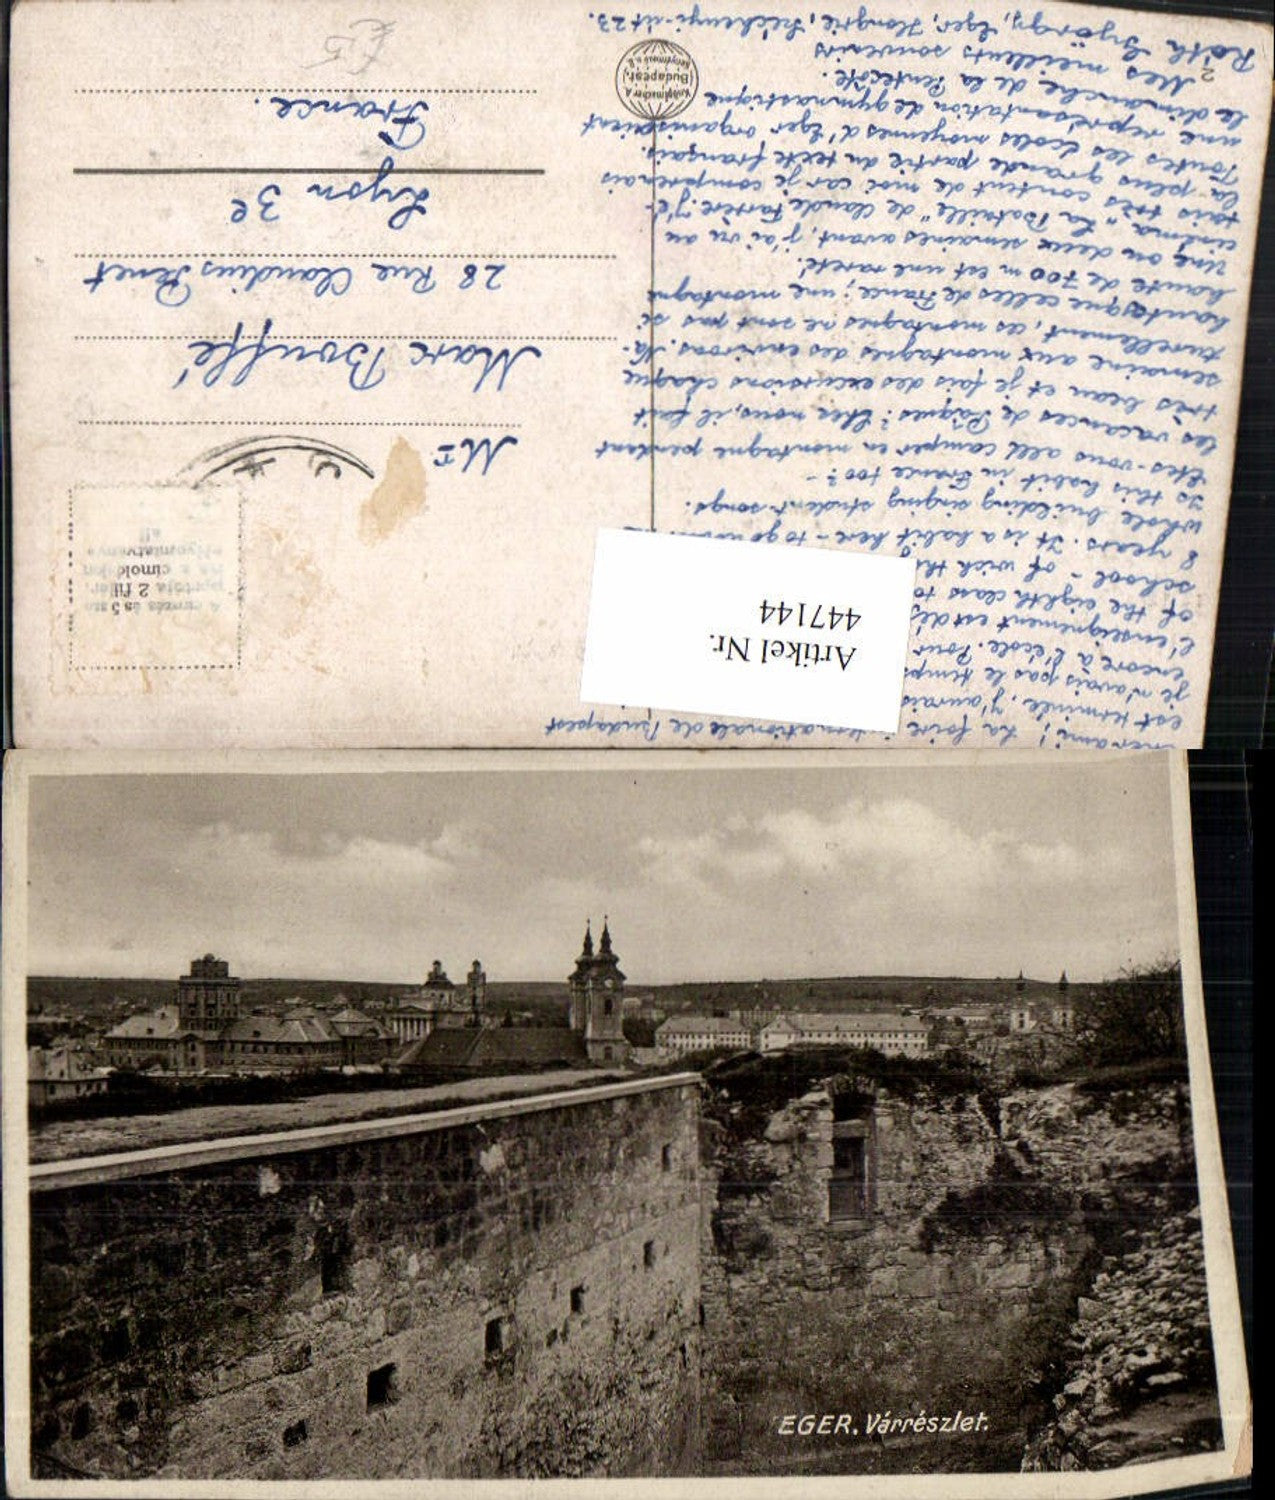 Cher ami! La foire internationale de Budapest
est terminée, j'aurais
je n'avais pas le temps
encore à l'école. Pour
l'enseignement est
of the eighth class to
school - of wich th
8 years. It is a habit here - to go
whole building singing student-songs.
Is this habit in France too? -
Êtes-vous allé camper en montagne pendant
les vacances de Pâques? Chez nous, il fait
très beau et je fais des excursions chaque
semaine aux montagnes des environs. Na-
turellement, ces montagnes ne sont pas si
hautes que celles de France; une montagne
haute de 700 m est une rareté.
Une ou deux semaines avant, j'ai vu au
cinéma "La Bataille" de Claude Farrère. J'é-
tais très content de moi car je comprenais
la plus grande partie du texte français.
Toutes les écoles moyennes d'Eger organisaient
une représentation de gymnastique
le dimanche de la Pentecôte.
Mes meilleurs souvenirs
Róth György, Eger, Hongrie, Széchenyi-út 23.
4 curzis és 5 szó
portója 2 fill.
ha a címoldalon
«Nyomtatvány»
áll
Mr
Marc Bouffé
28 Rue Claudius Penet
Lyon 3e
France.
Budapest,
Artikel Nr.
447144
EGER. Várrészlet.